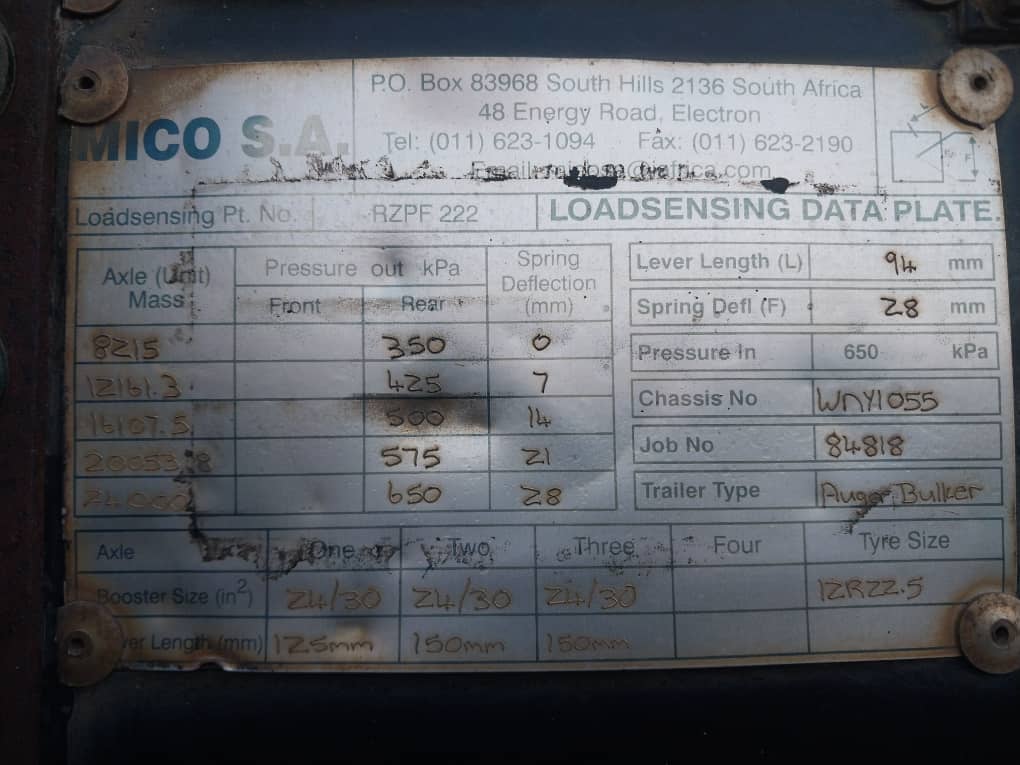 MICO S.A.
P.O. Box 83968 South Hills 2136 South Africa
48 Energy Road, Electron
Tel: (011) 623-1094 Fax: (011) 623-2190
Loadsensing Pt. No. RZPF 222 LOADSENSING DATA PLATE.
Axle (Unit) Mass Pressure out kPa Spring Deflection (mm)
Front Rear
8215 350 0
12161.3 425 7
16107.5 500 14
20053.8 575 21
24000 650 28
Lever Length (L) 94 mm
Spring Defl (F) 28 mm
Pressure In 650 kPa
Chassis No WNY1055
Job No 84818
Trailer Type Auger Bulker
Axle One Two Three Four Tyre Size
Booster Size (in²) 24/30 24/30 24/30 12R22.5
Length (mm) 125mm 150mm 150mm